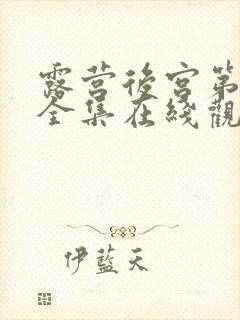 露营後宫第
全集在綫觀
伊藍天